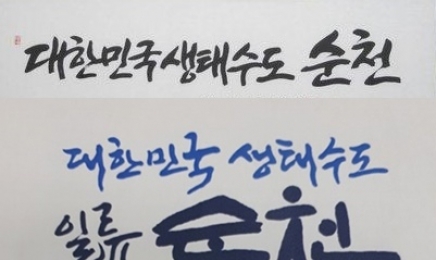 대한민국생태수도 순천
대한민국 생태수도
일류 순천